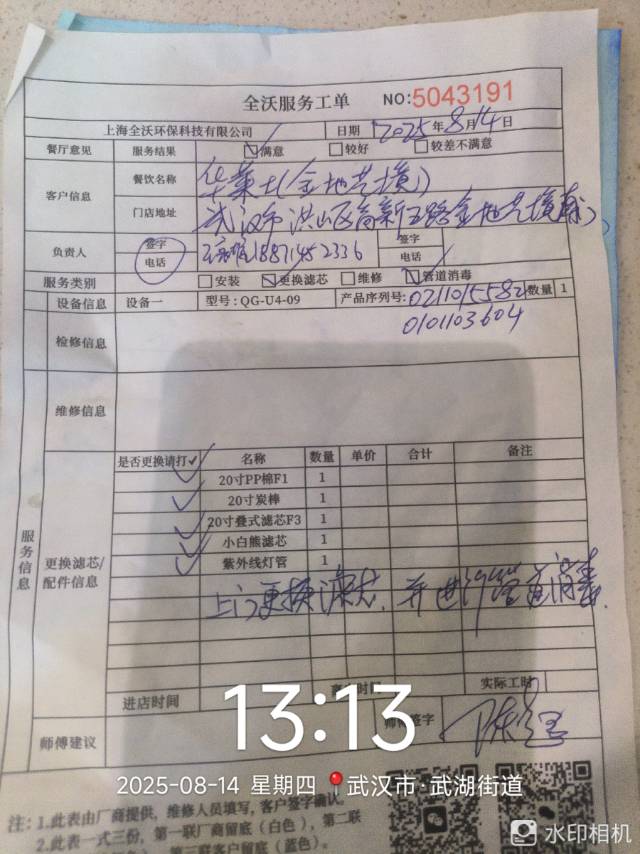 全沃服务工单 NO:5043191
上海全沃环保科技有限公司 日期 2025年8月14日
餐厅意见 服务结果 满意 较好 较差不满意
客户信息 餐饮名称 华莱士(金地艺境)
门店地址 武汉市洪山区高新五路金地艺境
负责人 签字 签字
电话 18871452336 电话
服务类别 安装 更换滤芯 维修 管道消毒
设备信息 设备一 型号:QG-U4-09 产品序列号:0211015582 数量 1
0101103604
检修信息
维修信息
服务信息
更换滤芯/配件信息
是否更换请打✓ 名称 数量 单价 合计 备注
✓ 20寸PP棉F1 1
✓ 20寸炭棒 1
✓ 20寸叠式滤芯F3 1
✓ 小白熊滤芯 1
✓ 紫外线灯管 1
上门更换滤芯,并进行管道消毒.
进店时间 实际工时
师傅建议 签字
13:13
2025-08-14 星期四 武汉市·武湖街道
注:1.此表由厂商提供,维修人员填写,客户签字确认。
2.此表一式三份,第一联厂商留底(白色),第二联
第三联客户留底(蓝色)。
水印相机